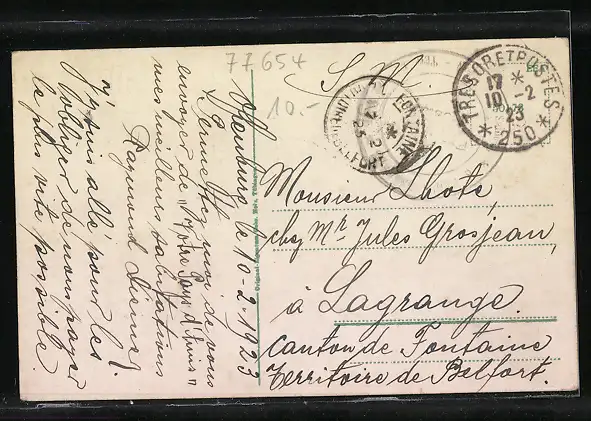 77654
10.-
S. M.
TRESOR ET POSTES
17 *
10 -2
23
* 250 *
FONTAINE
BELFORT
Offenburg le 10-2-1923
Permettez moi de vous
envoyer de "votre Pays
mes meilleurs salutations
Raymond
n'y suis allé pour les
obliger de nous payer
le plus vite possible.
Monsieur Lhote,
chez Mr. Jules Grosjean,
à Lagrange.
Canton de Fontaine
Territoire de Belfort.